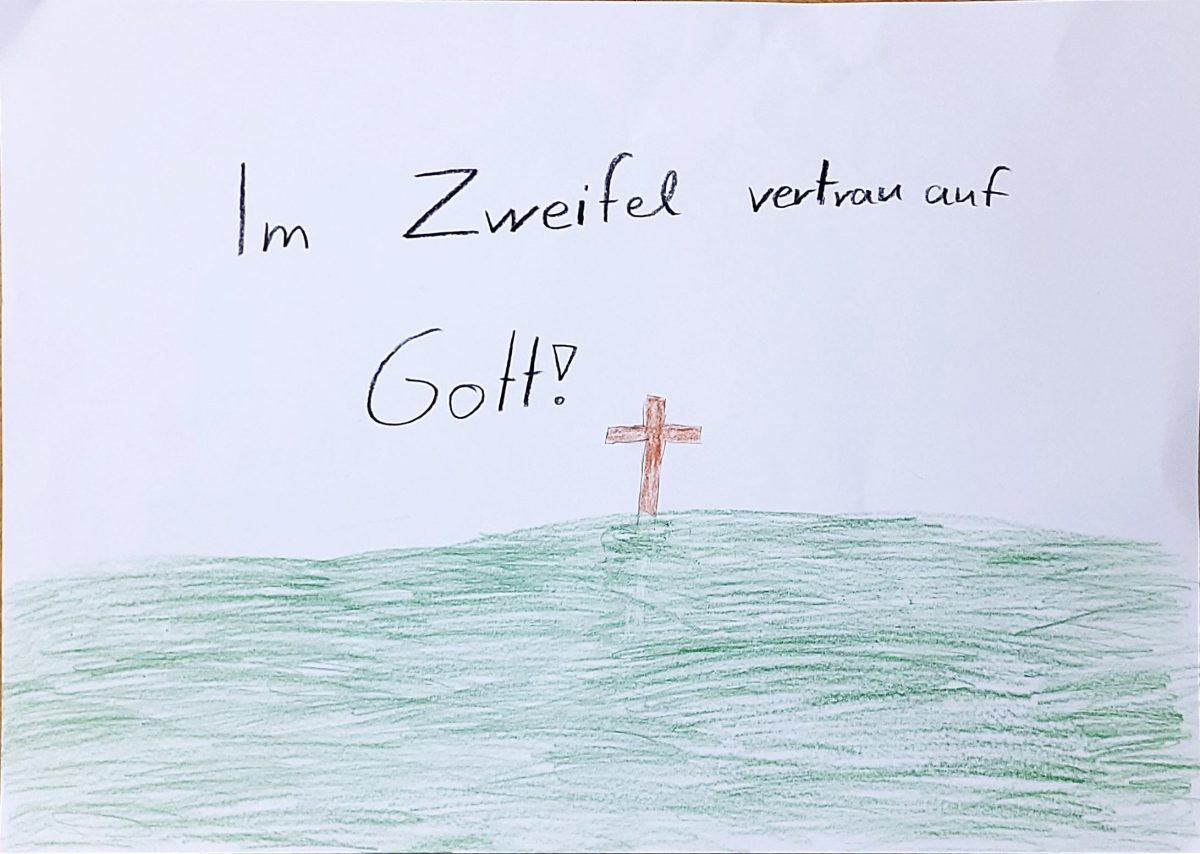 Im Zweifel vertrau auf
Gott!